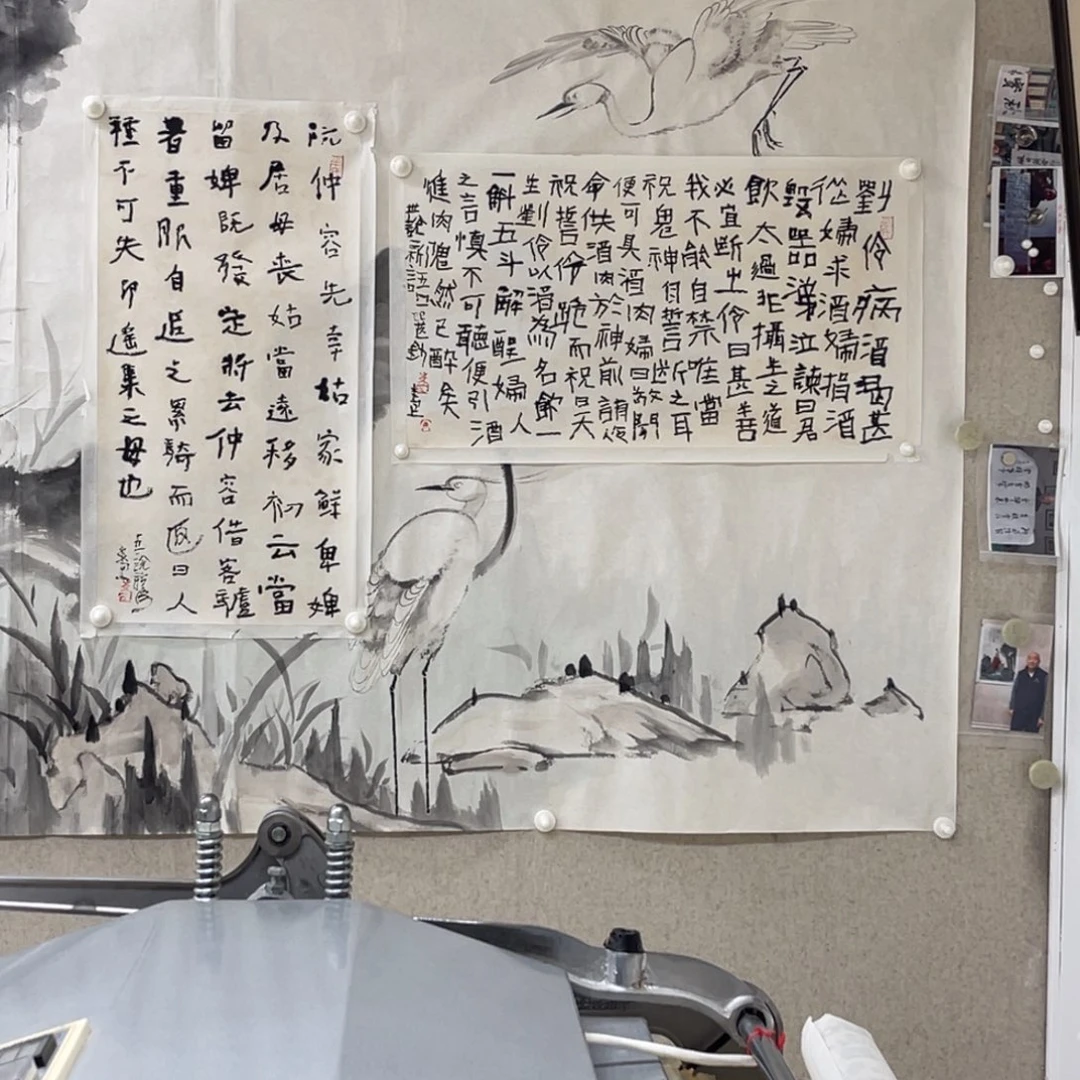 劉伶病酒渴甚
從婦求酒婦捐酒
毀器涕泣諫曰君
飲太過非攝生之道
必宜斷之伶曰甚善
我不能自禁唯當
祝鬼神自誓斷之耳
便可具酒肉婦曰敬聞
命供酒肉於神前請伶
祝誓伶跪而祝曰天
生劉伶以酒為名飲一
斛五斗解酲婦人
之言慎不可聽便引酒
進肉隗然已醉矣
世說新語
阮仲容先幸姑家鮮卑婢
及居母喪姑當遠移初云當
留婢既發定將去仲容借客驢
著重服自追之累騎而返曰人
種不可失即遙集之母也